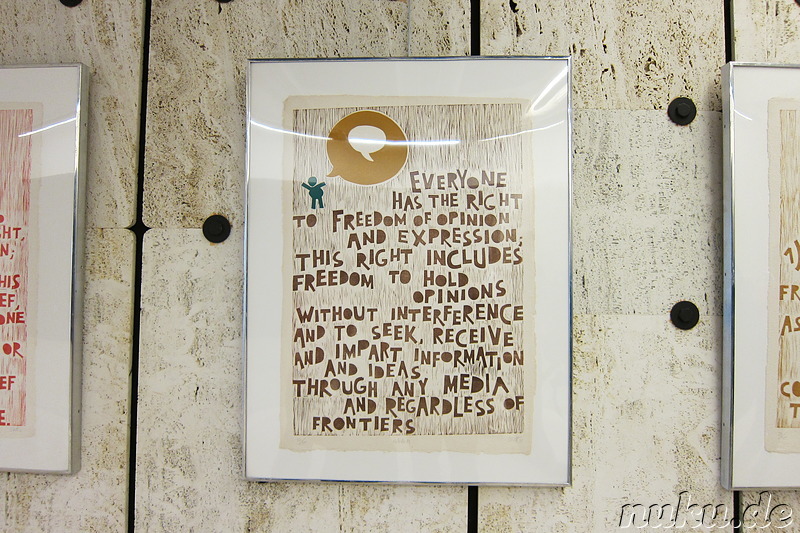 EVERYONE
HAS THE RIGHT
TO FREEDOM OF OPINION
AND EXPRESSION;
THIS RIGHT INCLUDES
FREEDOM TO HOLD
OPINIONS
WITHOUT INTERFERENCE
AND TO SEEK, RECEIVE
AND IMPART INFORMATION
AND IDEAS
THROUGH ANY MEDIA
AND REGARDLESS OF
FRONTIERS
OR
nuku.de